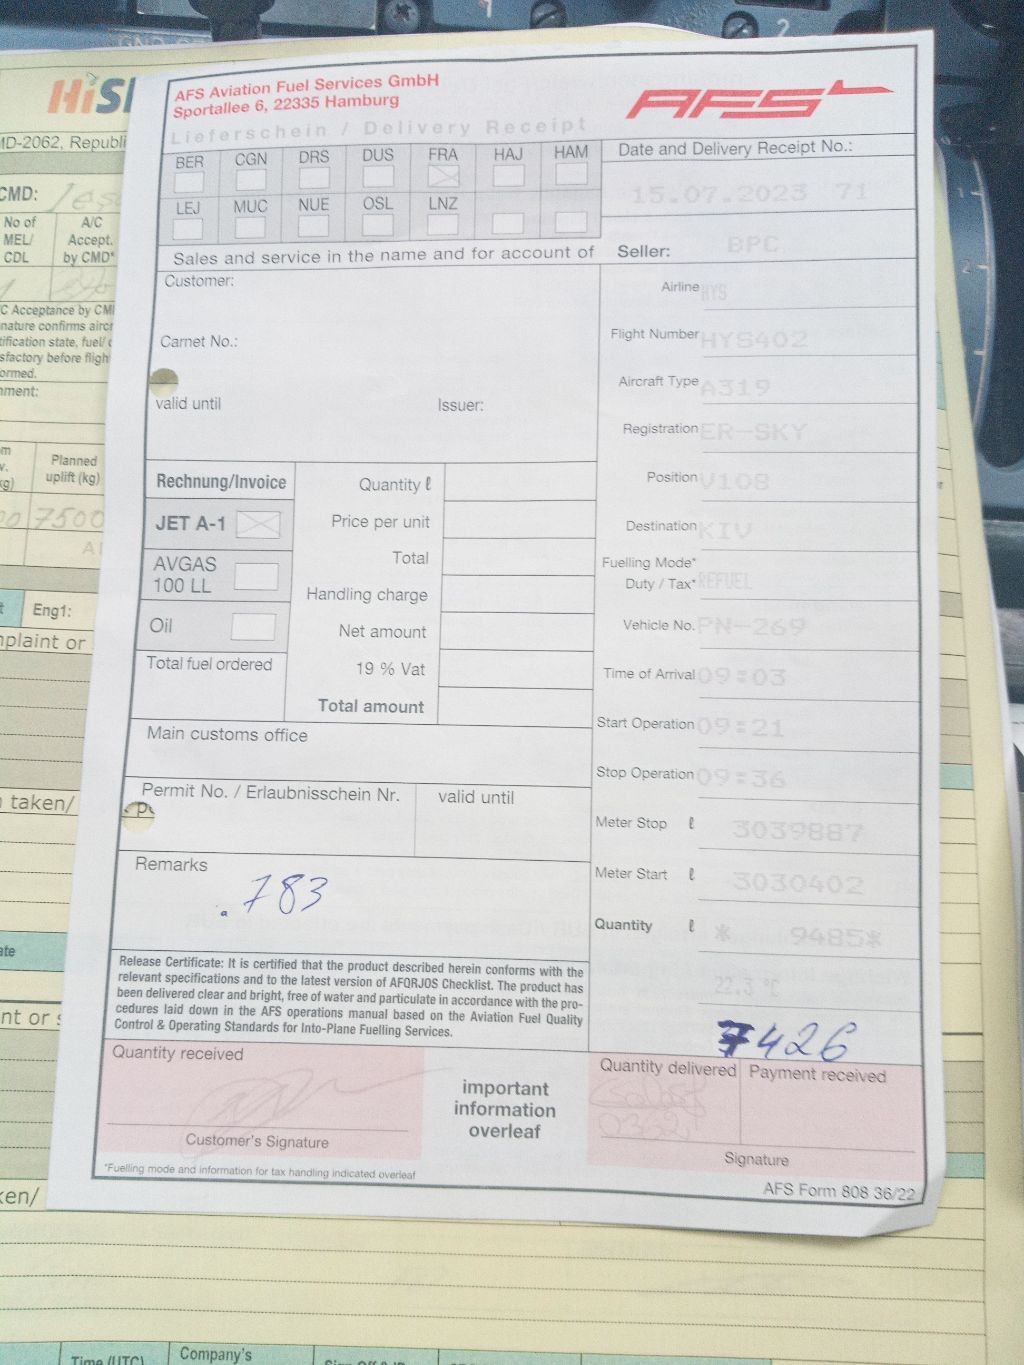 HiS
MD-2062, Republi
CMD:
No of MEL/ CDL
A/C Accept. by CMD*
C Acceptance by CM
nature confirms aircr
tification state, fuel/
sfactory before fligh
ormed.
ment:
Planned uplift (kg)
7500
Eng1:
plaint or
taken/
ate
nt or
ken/
Time (UTC)
Company's
AFS Aviation Fuel Services GmbH
Sportallee 6, 22335 Hamburg
AFS
Lieferschein / Delivery Receipt
BER CGN DRS DUS FRA HAJ HAM
LEJ MUC NUE OSL LNZ
Date and Delivery Receipt No.:
15.07.2023 71
Sales and service in the name and for account of
Seller: BPC
Customer:
Carnet No.:
valid until
Issuer:
Airline HYS
Flight Number HYS402
Aircraft Type A319
Registration ER-SKY
Position V108
Destination KIV
Fuelling Mode*
Duty / Tax* REFUEL
Vehicle No. PN-269
Time of Arrival 09:03
Start Operation 09:21
Stop Operation 09:36
Meter Stop ℓ 3039887
Meter Start ℓ 3030402
Quantity ℓ * 9485*
22.3 °C
7426
Rechnung/Invoice
JET A-1
AVGAS 100 LL
Oil
Total fuel ordered
Quantity ℓ
Price per unit
Total
Handling charge
Net amount
19 % Vat
Total amount
Main customs office
Permit No. / Erlaubnisschein Nr.
valid until
Remarks
.783
Release Certificate: It is certified that the product described herein conforms with the
relevant specifications and to the latest version of AFQRJOS Checklist. The product has
been delivered clear and bright, free of water and particulate in accordance with the pro-
cedures laid down in the AFS operations manual based on the Aviation Fuel Quality
Control & Operating Standards for Into-Plane Fuelling Services.
Quantity received
Customer's Signature
important
information
overleaf
Quantity delivered
Payment received
Signature
*Fuelling mode and information for tax handling indicated overleaf
AFS Form 808 36/22